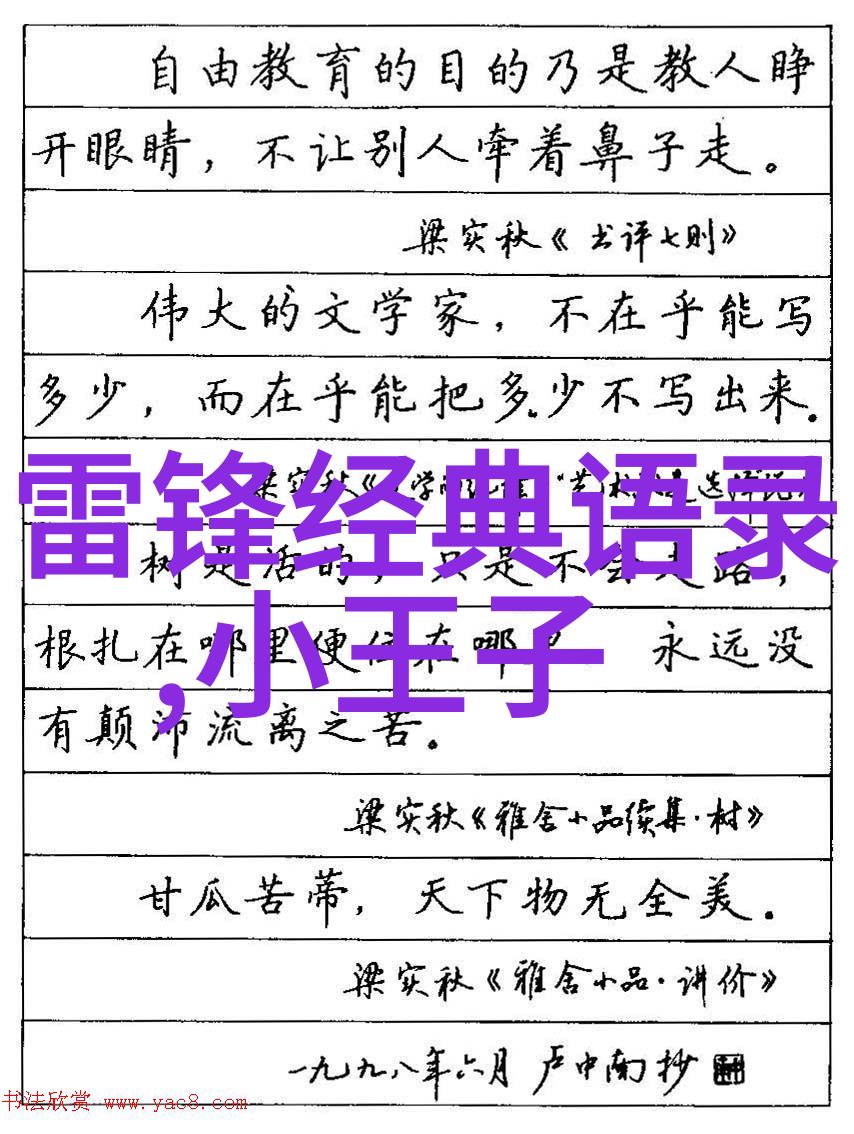 自由教育的目的乃是教人睁
开眼睛，不让别人牵着鼻子走。
梁实秋《书评七则》
伟大的文学家，不在乎能写
多少，而在乎能把多少不写出来．
梁实秋《
雷锋经典语录
树是活的，只是不会走路，
根扎在哪里便住在哪里 永远没
,小王子
有颠沛流离之苦。
梁实秋《雅舍小品续集·树》
甘瓜苦蒂，天下物无全美．
梁实秋《雅舍小品·讲价》
一九九八年六月 卢中南抄
书法欣赏 www.yac8.com